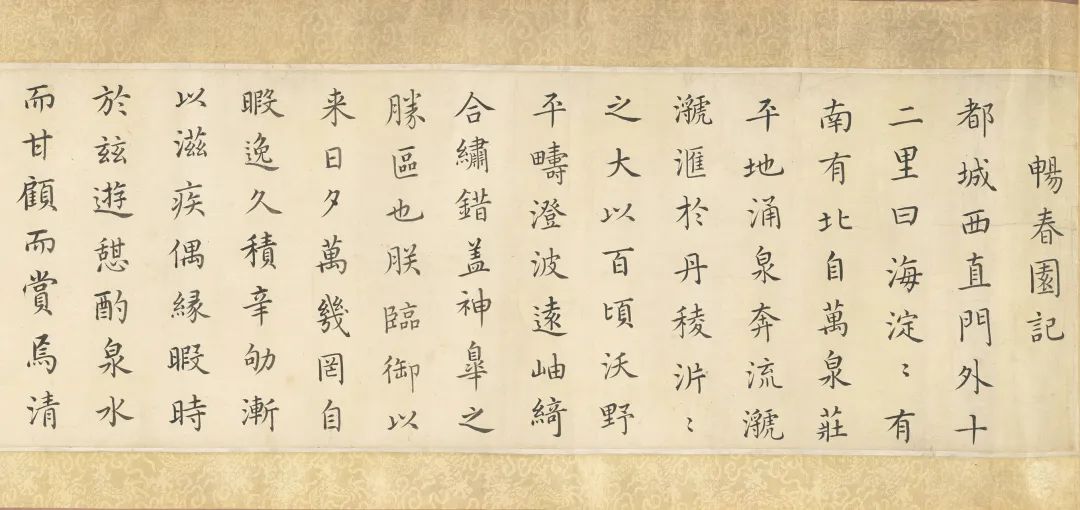 暢春園記
都城西直門外十
二里曰海淀〻有
南有北自萬泉莊
平地涌泉奔流㶁
㶁滙於丹稜沜〻
之大以百頃沃野
平疇澄波遠岫綺
合繡錯盖神皋之
勝區也朕臨御以
来日夕萬幾罔自
暇逸久積辛劬漸
以滋疾偶縁暇時
於兹遊憇酌泉水
而甘顧而賞焉清